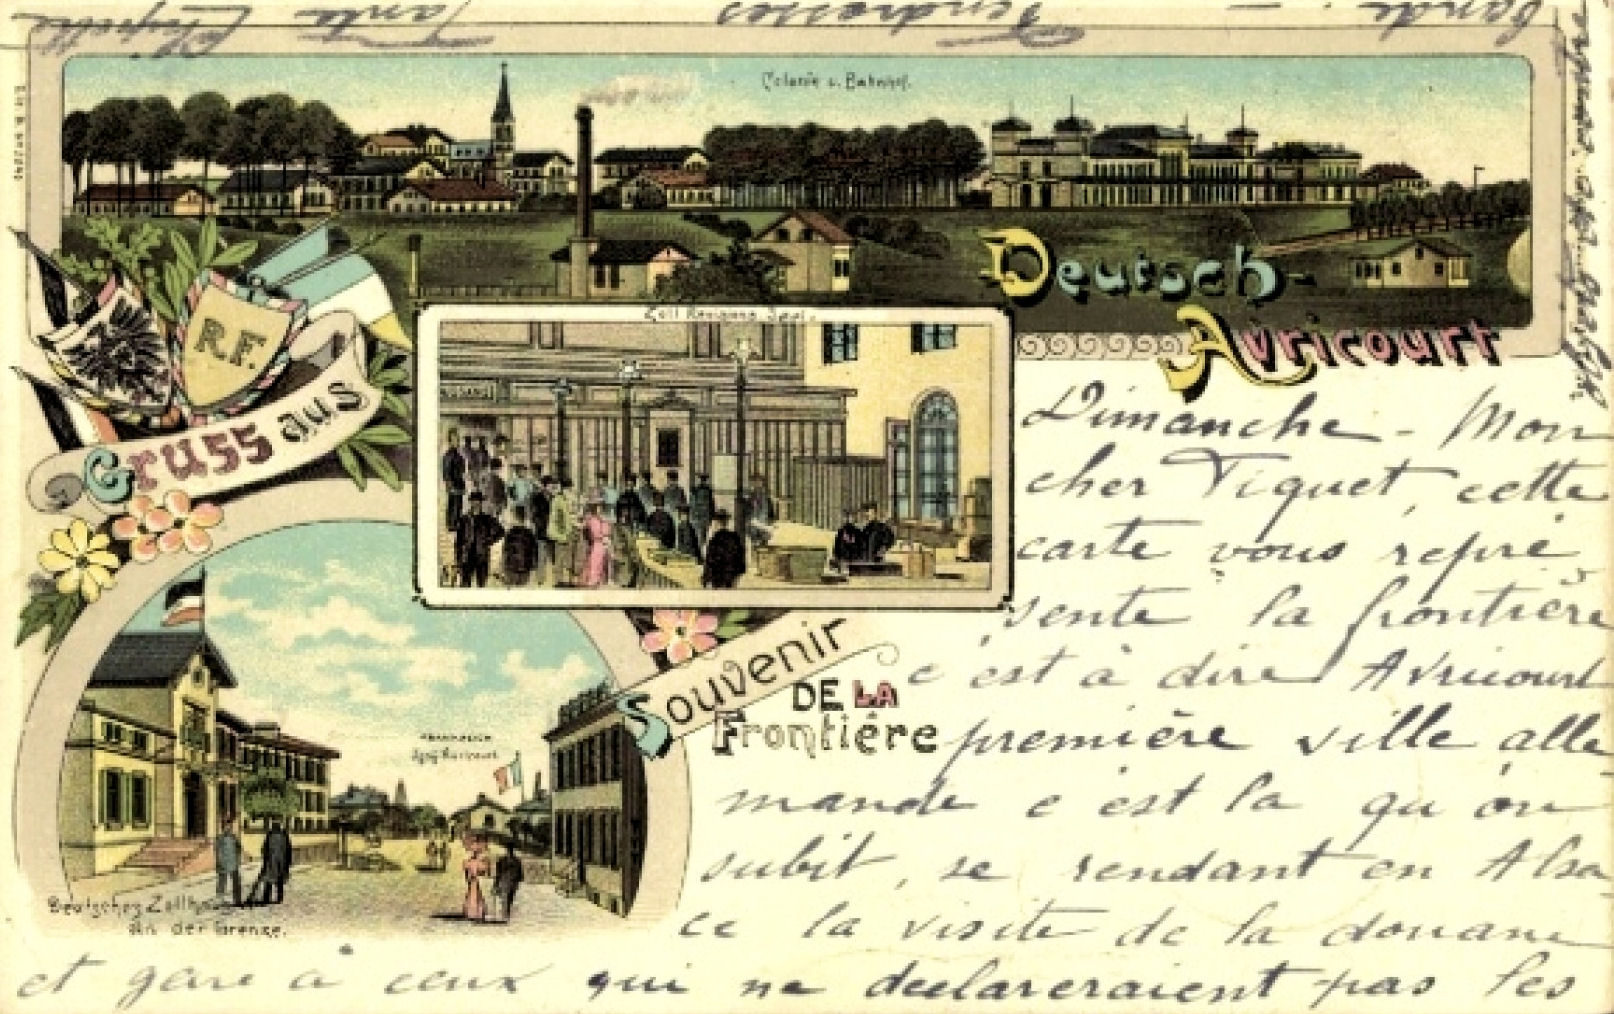 Colonie u. Bahnhof.
Deutsch-
Avricourt
Zoll Revisions Saal.
R.F.
Gruss aus
Souvenir
DE LA
Frontière
Deutsches Zollhaus
an der Grenze.
Dimanche - Mon
cher Tiquet, cette
carte vous repré
sente la frontière
c'est à dire Avricourt
première ville alle
mande c'est la qu'on
subit, se rendant en Alsa
ce la visite de la douane
et gare à ceux qui ne declareraient pas les
bande. -
Tendresses
Tante